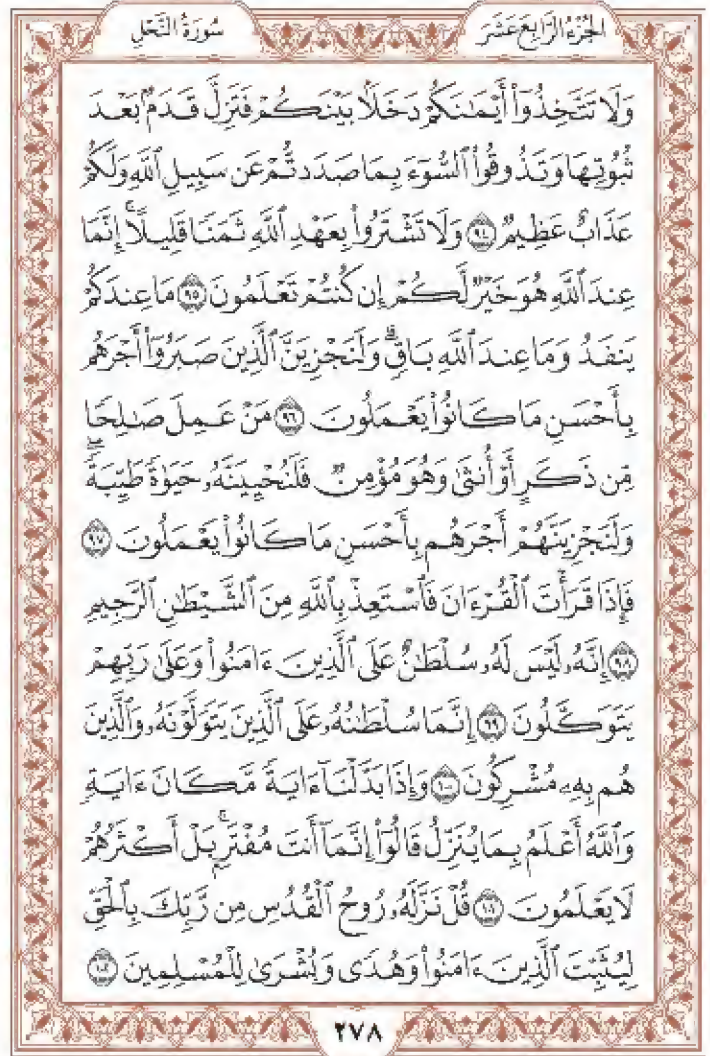 الجُزْءُ الرَّابِعَ عَشَرَ
سُورَةُ النَّحْلِ
وَلَا تَتَّخِذُوٓا۟ أَيْمَٰنَكُمْ دَخَلًۢا بَيْنَكُمْ فَتَزِلَّ قَدَمٌۢ بَعْدَ
ثُبُوتِهَا وَتَذُوقُوا۟ ٱلسُّوٓءَ بِمَا صَدَدتُّمْ عَن سَبِيلِ ٱللَّهِ وَلَكُمْ
عَذَابٌ عَظِيمٌ ﴿٩٤﴾ وَلَا تَشْتَرُوا۟ بِعَهْدِ ٱللَّهِ ثَمَنًا قَلِيلًا ۚ إِنَّمَا
عِندَ ٱللَّهِ هُوَ خَيْرٌ لَّكُمْ إِن كُنتُمْ تَعْلَمُونَ ﴿٩٥﴾ مَا عِندَكُمْ
يَنفَدُ وَمَا عِندَ ٱللَّهِ بَاقٍ ۗ وَلَنَجْزِيَنَّ ٱلَّذِينَ صَبَرُوٓا۟ أَجْرَهُم
بِأَحْسَنِ مَا كَانُوا۟ يَعْمَلُونَ ﴿٩٦﴾ مَنْ عَمِلَ صَٰلِحًا
مِّن ذَكَرٍ أَوْ أُنثَىٰ وَهُوَ مُؤْمِنٌ فَلَنُحْيِيَنَّهُۥ حَيَوٰةً طَيِّبَةً ۖ
وَلَنَجْزِيَنَّهُمْ أَجْرَهُم بِأَحْسَنِ مَا كَانُوا۟ يَعْمَلُونَ ﴿٩٧﴾
فَإِذَا قَرَأْتَ ٱلْقُرْءَانَ فَٱسْتَعِذْ بِٱللَّهِ مِنَ ٱلشَّيْطَٰنِ ٱلرَّجِيمِ
﴿٩٨﴾ إِنَّهُۥ لَيْسَ لَهُۥ سُلْطَٰنٌ عَلَى ٱلَّذِينَ ءَامَنُوا۟ وَعَلَىٰ رَبِّهِمْ
يَتَوَكَّلُونَ ﴿٩٩﴾ إِنَّمَا سُلْطَٰنُهُۥ عَلَى ٱلَّذِينَ يَتَوَلَّوْنَهُۥ وَٱلَّذِينَ
هُم بِهِۦ مُشْرِكُونَ ﴿١٠٠﴾ وَإِذَا بَدَّلْنَآ ءَايَةً مَّكَانَ ءَايَةٍ
وَٱللَّهُ أَعْلَمُ بِمَا يُنَزِّلُ قَالُوٓا۟ إِنَّمَآ أَنتَ مُفْتَرٍۭ ۚ بَلْ أَكْثَرُهُمْ
لَا يَعْلَمُونَ ﴿١٠١﴾ قُلْ نَزَّلَهُۥ رُوحُ ٱلْقُدُسِ مِن رَّبِّكَ بِٱلْحَقِّ
لِيُثَبِّتَ ٱلَّذِينَ ءَامَنُوا۟ وَهُدًى وَبُشْرَىٰ لِلْمُسْلِمِينَ ﴿١٠٢﴾
٢٧٨